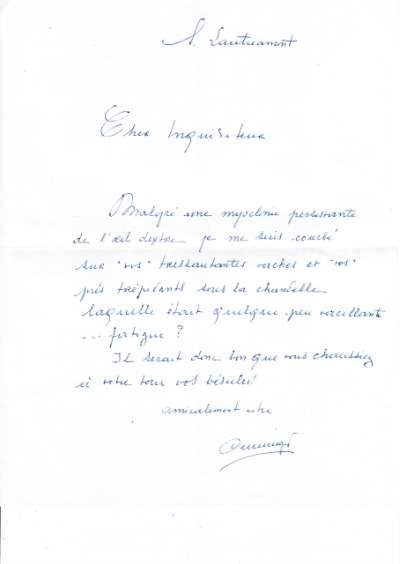 A. Lautréamont
Cher Inquisiteur
Malgré une myoclonie persistante
de l'œil dextre je me suis courbé
sur "vos" tressautantes vaches et "vos"
prés trépidants sous la chandelle
laquelle était quelque peu vacillante
... fatigue ?
Il serait donc bon que vous chaussiez
à votre tour vos bésicles!
amicalement votre